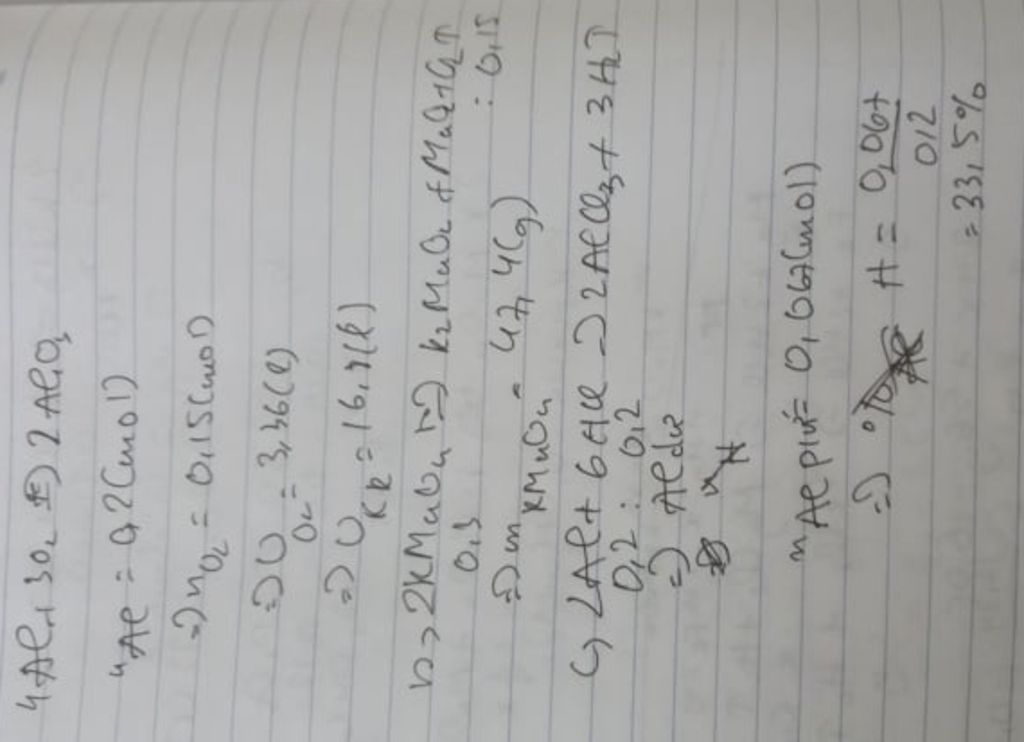 4Al + 3O₂ → 2Al₂O₃
nAl = 0,2(mol)
=> nO₂ = 0,15(mol)
=> VO₂ = 3,36(l)
=> VKK = 16,8(l)
b> 2KMnO₄ → K₂MnO₄ + MnO₂ + O₂↑
0,3 : 0,15
=> mKMnO₄ = 47,4(g)
c> 2Al + 6HCl → 2AlCl₃ + 3H₂↑
0,2 : 0,2
=> Al dư
nAl pứ = 0,067(mol)
=> H = 0,067
0,2
= 33,5%